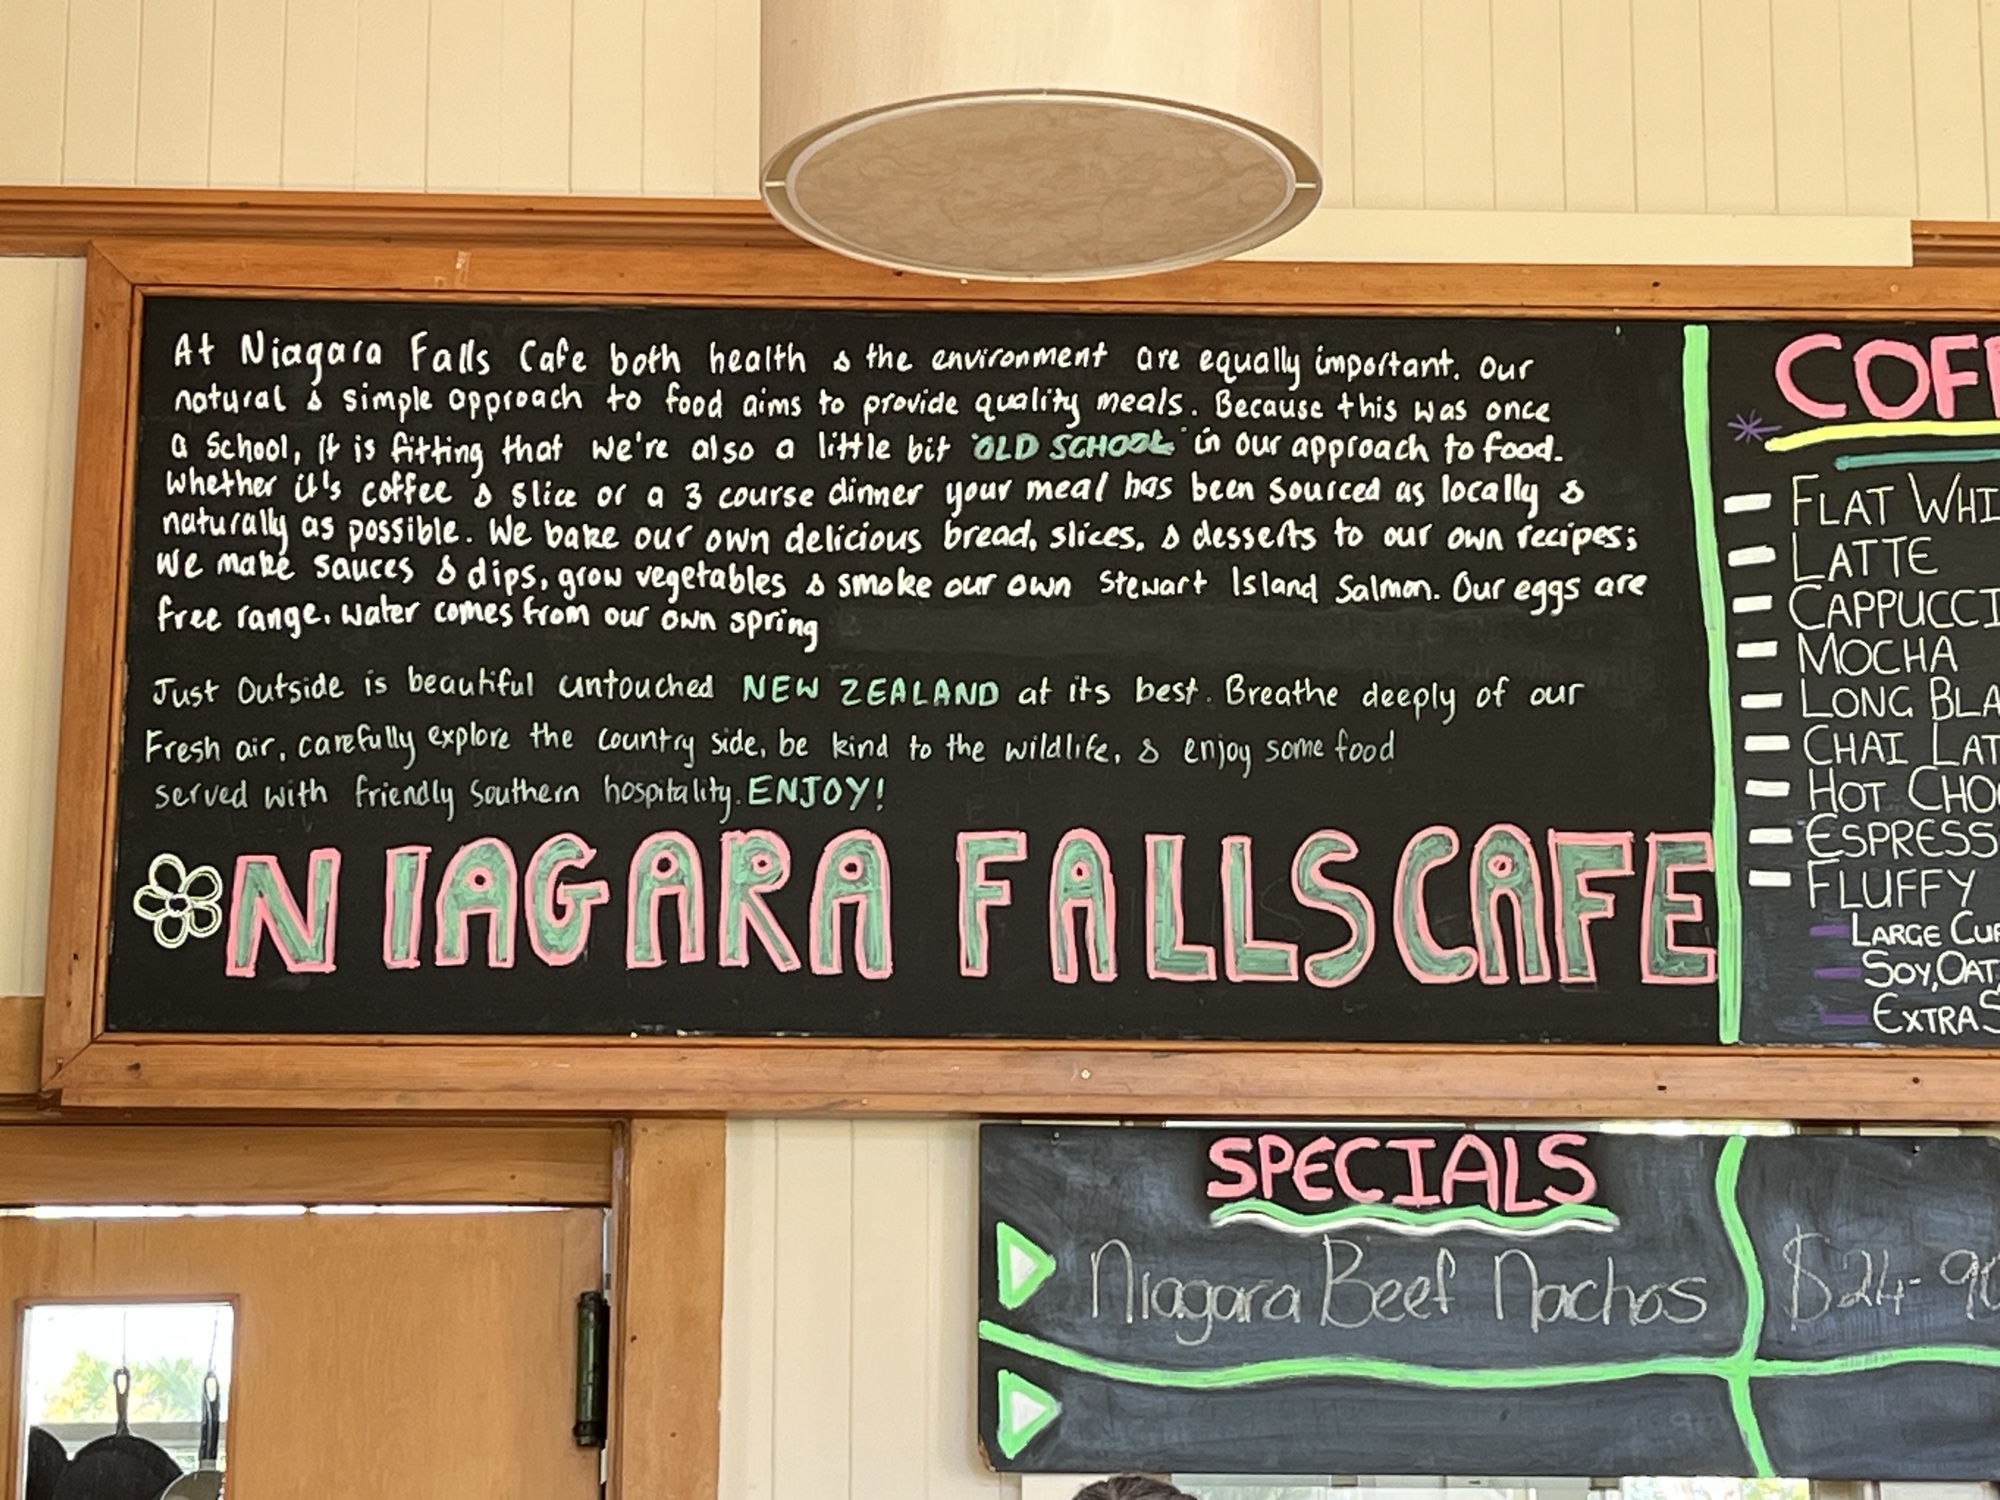 At Niagara Falls Cafe both health & the environment are equally important. Our
natural & simple approach to food aims to provide quality meals. Because this was once
a School, it is fitting that we're also a little bit 'OLD SCHOOL' in our approach to food.
Whether it's coffee & slice or a 3 course dinner your meal has been sourced as locally &
naturally as possible. We bake our own delicious bread, slices, & desserts to our own recipes;
We make sauces & dips, grow vegetables & smoke our own Stewart Island Salmon. Our eggs are
free range. Water comes from our own spring
Just Outside is beautiful untouched NEW ZEALAND at its best. Breathe deeply of our
Fresh air, carefully explore the country side, be kind to the wildlife, & enjoy some food
served with friendly Southern hospitality. ENJOY!
NIAGARA FALLS CAFE
COFF
FLAT WHI
LATTE
CAPPUCCI
MOCHA
LONG BLA
CHAI LAT
HOT CHOC
ESPRESS
FLUFFY
LARGE CUP
SOY, OAT,
EXTRA S
SPECIALS
Niagara Beef Nachos $24-90